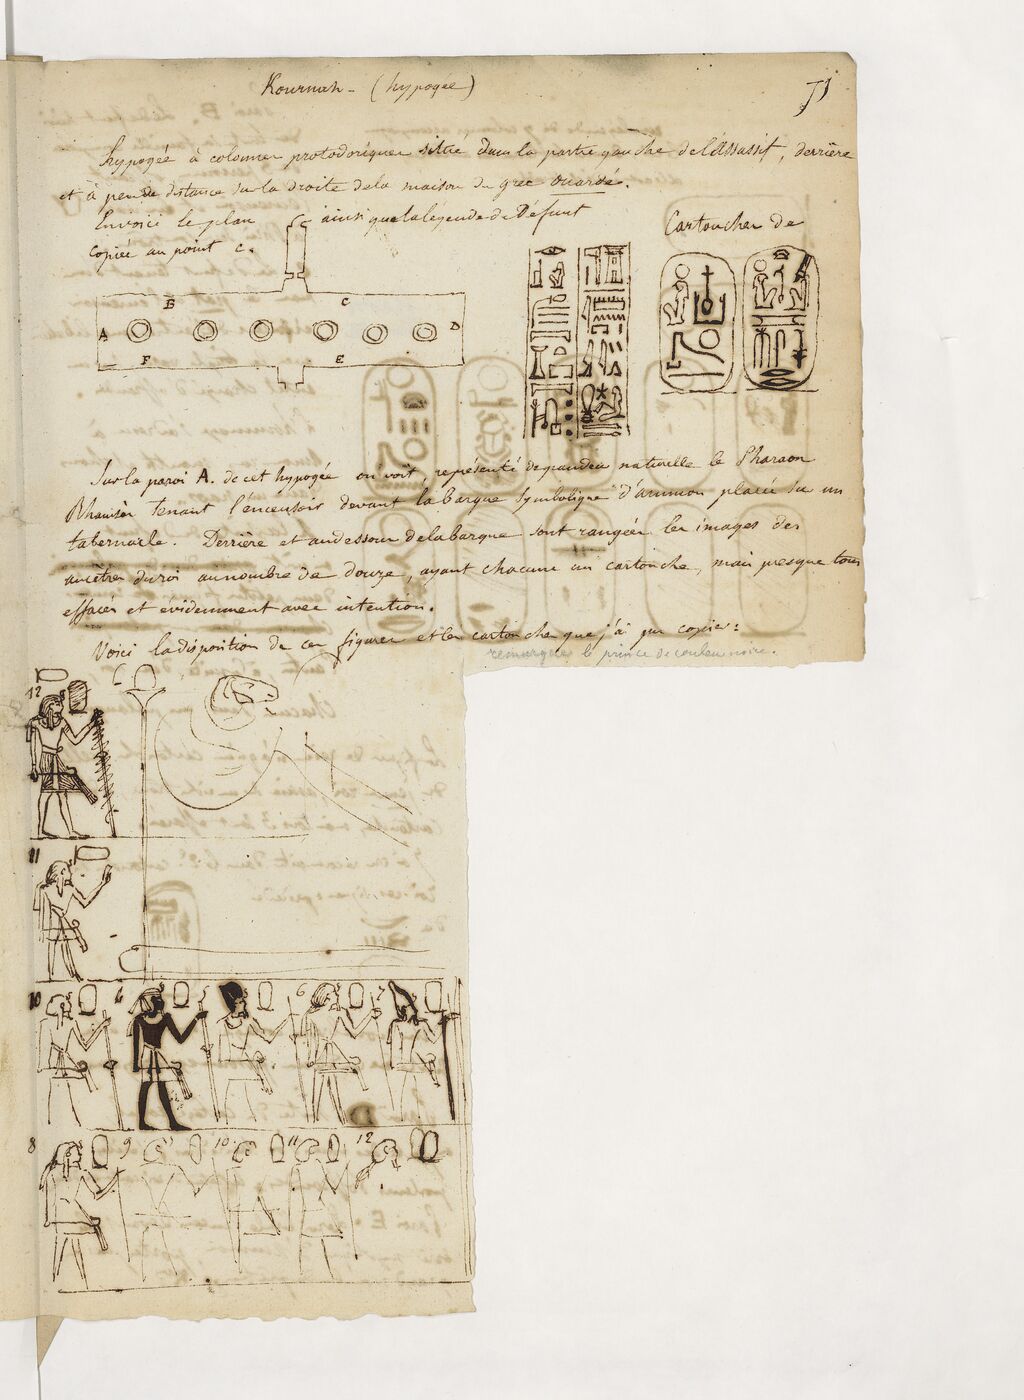 Kournah - (hypogée)
71
hypogée à colonnes protodoriques situé dans la partie gauche de l'Assassif, derrière
et à peu de distance sur la droite de la maison du grec ouardé.
Envoici le plan ainsi que la légende de Défunt
copiée au point c.
Cartouches de
B C
A D
F E
Sur la paroi A. de cet hypogée on voit, représenté de grandeur naturelle le Pharaon
Rhamsès tenant l'encensoir devant la barque symbolique d'ammon placée sur un
tabernacle. Derrière et au dessous de la barque sont rangées les images des
ancêtres du roi au nombre de douze, ayant chacune un cartouche, mais presque tous
effacés et évidemment avec intention.
Voici la disposition de ces figures et les cartouches que j'ai pu copier:
remarquer le prince de couleur noire.
12
11
10 6 7
8 9 10 11 12